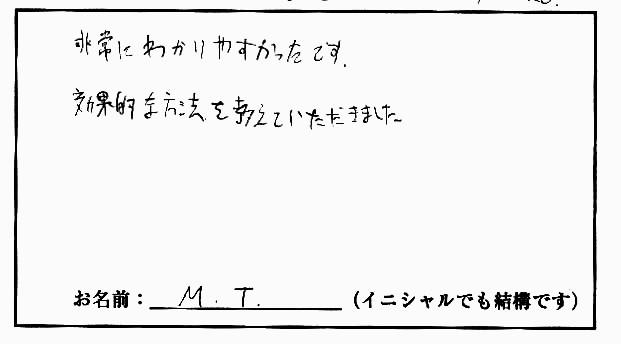 非常にわかりやすかったです.
効果的な方法を教えていただきました
お名前：M. T.（イニシャルでも結構です）